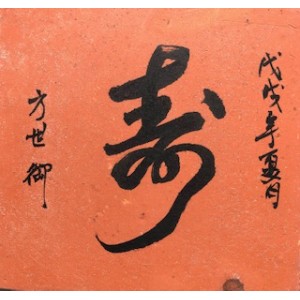 戊戌年夏月
寿
方世御